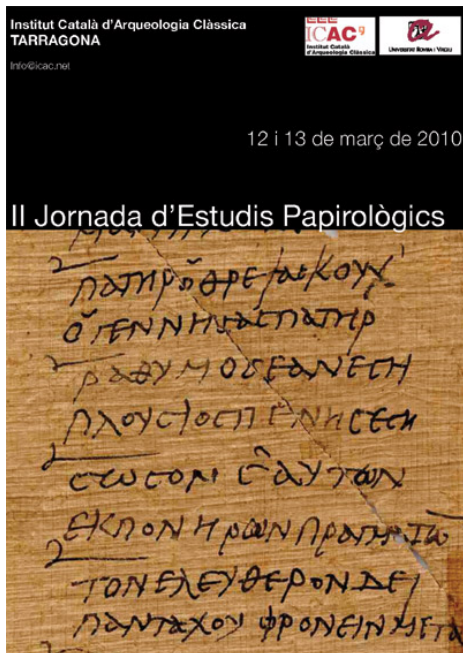 Institut Català d'Arqueologia Clàssica
TARRAGONA
Info@icac.net
ICAC9
Institut Català
d'Arqueologia Clàssica
UNIVERSITAT ROVIRA I VIRGILI
12 i 13 de març de 2010
II Jornada d'Estudis Papirològics
ΠΑΤΗΡ Ο ΘΡΕΨΑϹ ΚΟΥΧ
Ο ΓΕΝΝΗϹΑϹ ΠΑΤΗΡ
ΡΑΘΥΜΟϹ ΕΑΝ ΕϹΗ
ΠΛΟΥϹΙΟϹ ΠΕΝΗϹ ΕϹΗ
ϹΕΑΥΤΩΝ
ΕΚ ΠΟΝΗΡΩΝ
ΤΟΝ ΕΛΕΥΘΕΡΟΝ ΔΕΙ
ΠΑΝΤΑΧΟΥ ΦΡΟΝΕΙΝ ΜΕΓΑ